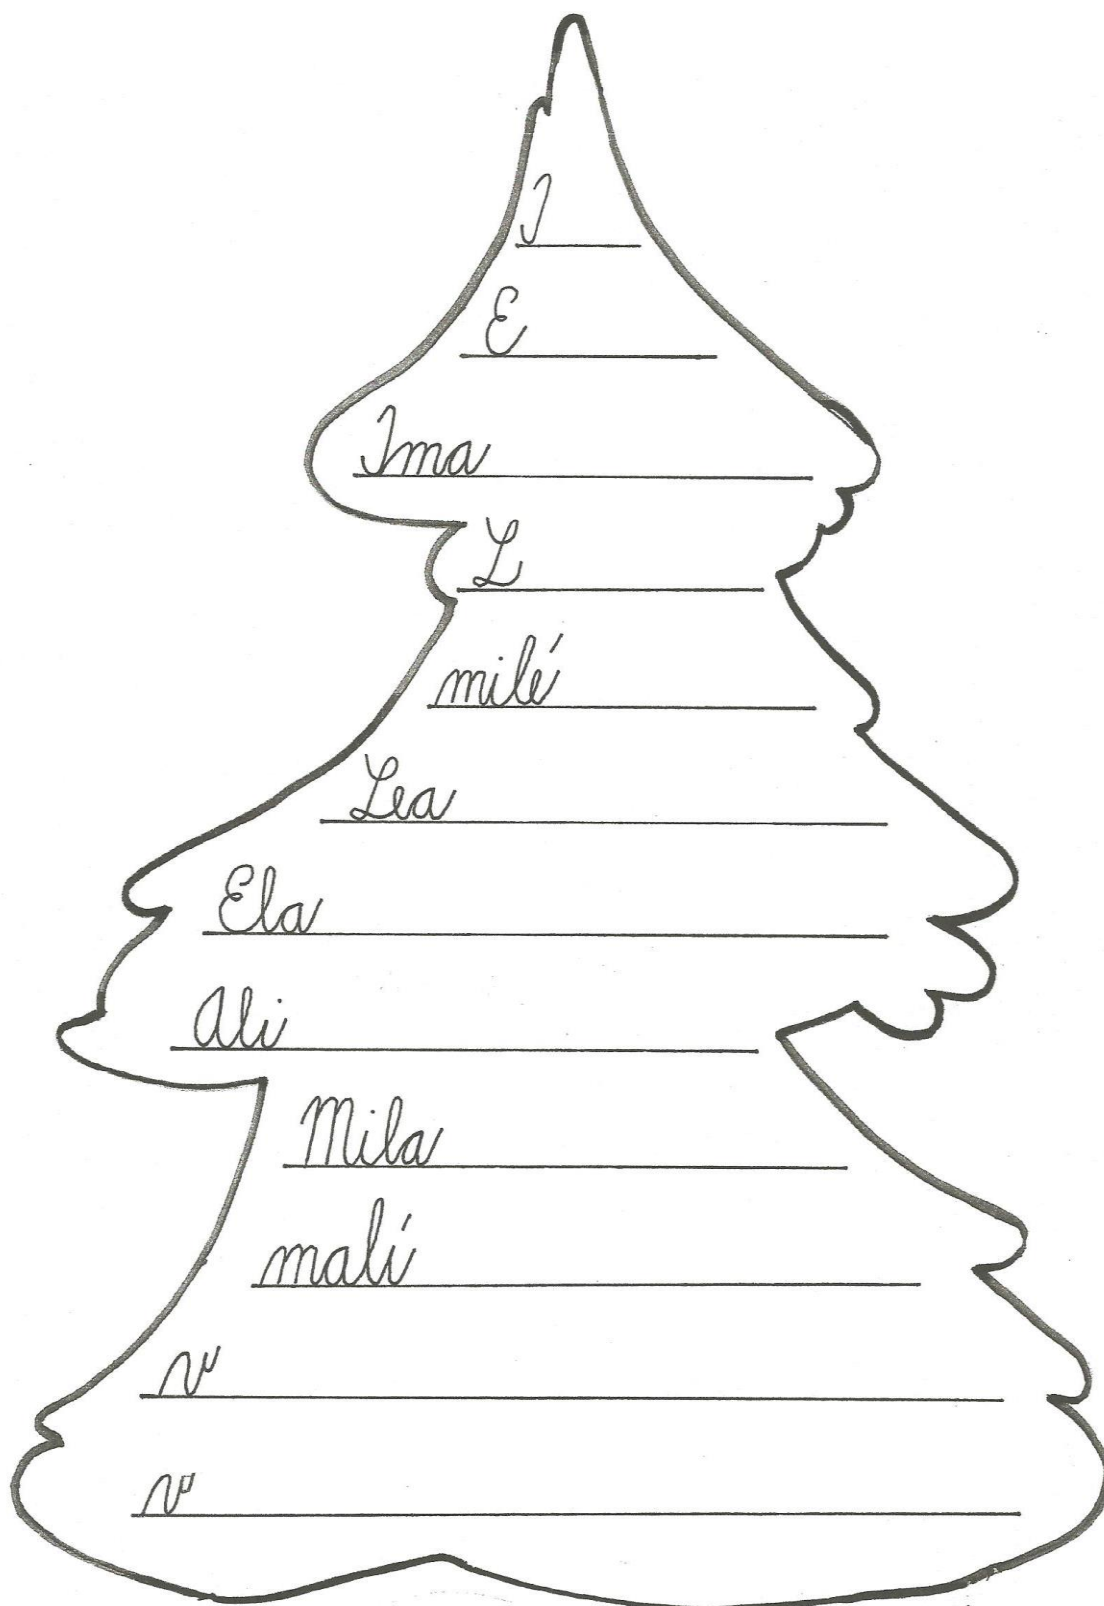 I
E
Ima
L
milé
Lea
Ela
Ali
Mila
malí
v
v